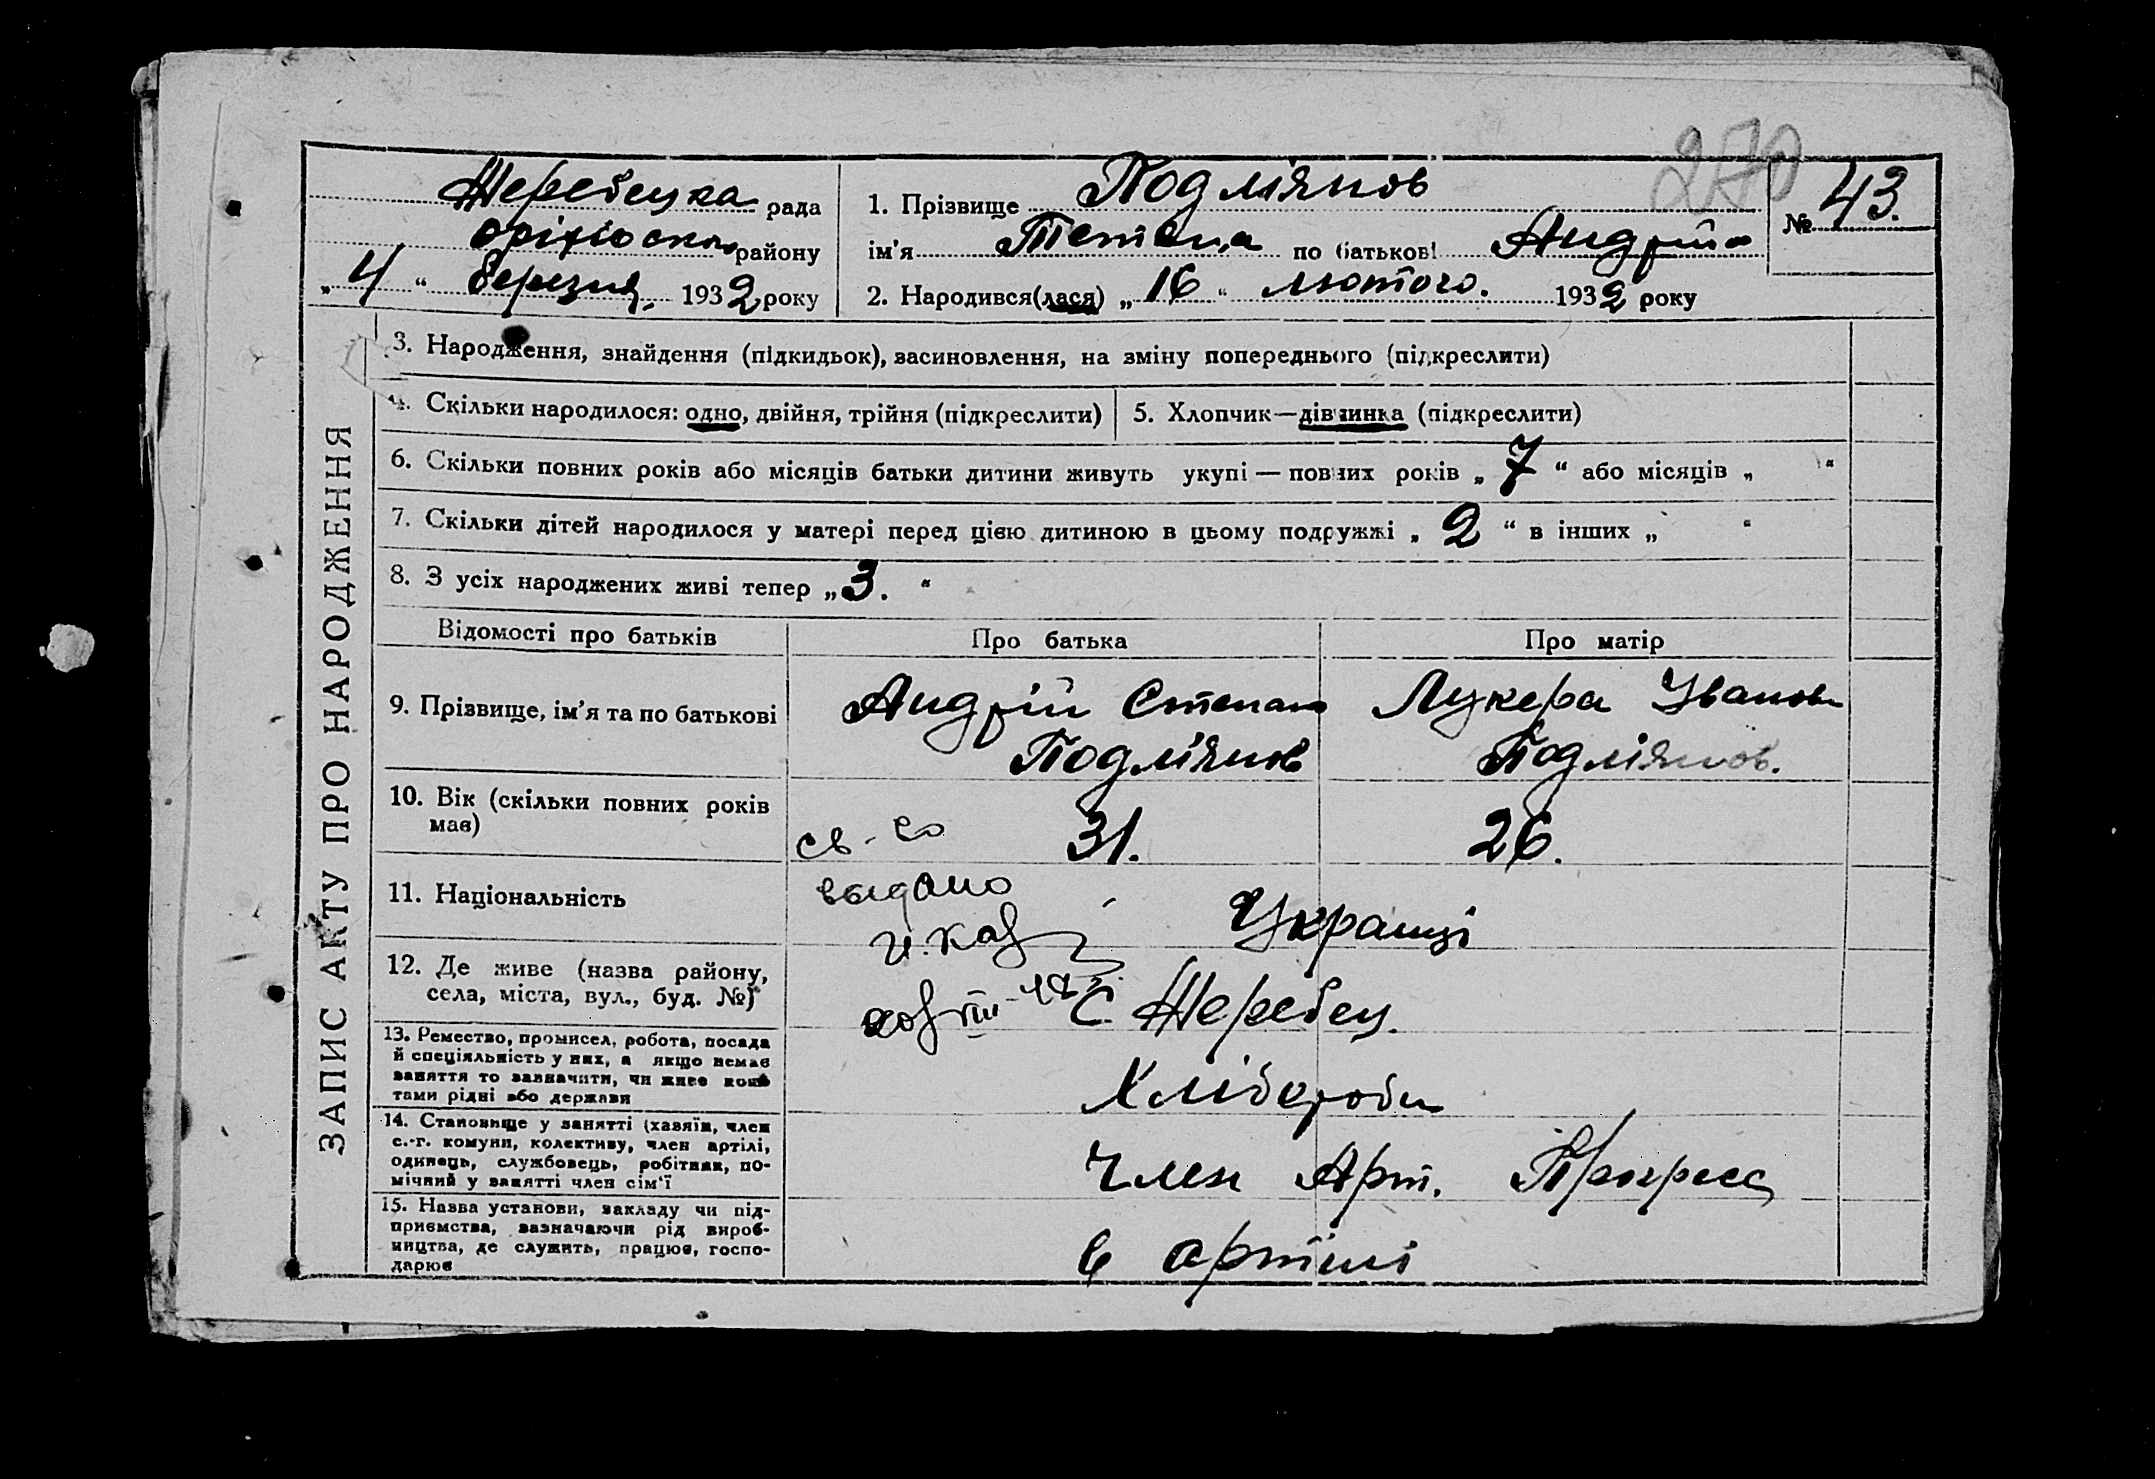 270
Жеребецка рада
Оріхівськ району
„ 4 “ березня. 1932 року
1. Прізвище Подліянов
ім'я Тетяна по батькові Андрій
№ 43.
2. Народився(лася) „ 16 “ лютого. 1932 року
ЗАПИС АКТУ ПРО НАРОДЖЕННЯ
3. Народження, знайдення (підкидьок), засиновлення, на зміну попереднього (підкреслити)
4. Скільки народилося: одно, двійня, трійня (підкреслити)
5. Хлопчик—дівчинка (підкреслити)
6. Скільки повних років або місяців батьки дитини живуть укупі — повних років „ 7 “ або місяців „ “
7. Скільки дітей народилося у матері перед цією дитиною в цьому подружжі „ 2 “ в інших „ “
8. З усіх народжених живі тепер „ 3. “
Відомості про батьків
Про батька
Про матір
9. Прізвище, ім'я та по батькові
Андрій Степан
Подліянов
Лукера Иванов
Подліянов.
10. Вік (скільки повних років
має)
31.
26.
св-во
выдано
11. Національність
Украінці
12. Де живе (назва району,
села, міста, вул., буд. №)
С. Жеребец.
13. Ремество, промисел, робота, посада
й спеціяльність у них, а якщо немає
заняття то зазначити, чи живе кош-
тами рідні або держави
Хлібороби
14. Становище у занятті (хазяїн, член
с.-г. комуни, колективу, член артілі,
одинець, службовець, робітник, по-
мічний у занятті член сім'ї
Член Арт. Прогресс
15. Назва установи, закладу чи під-
приємства, зазначаючи рід вироб-
ництва, де служить, працює, госпо-
дарює
в артілі